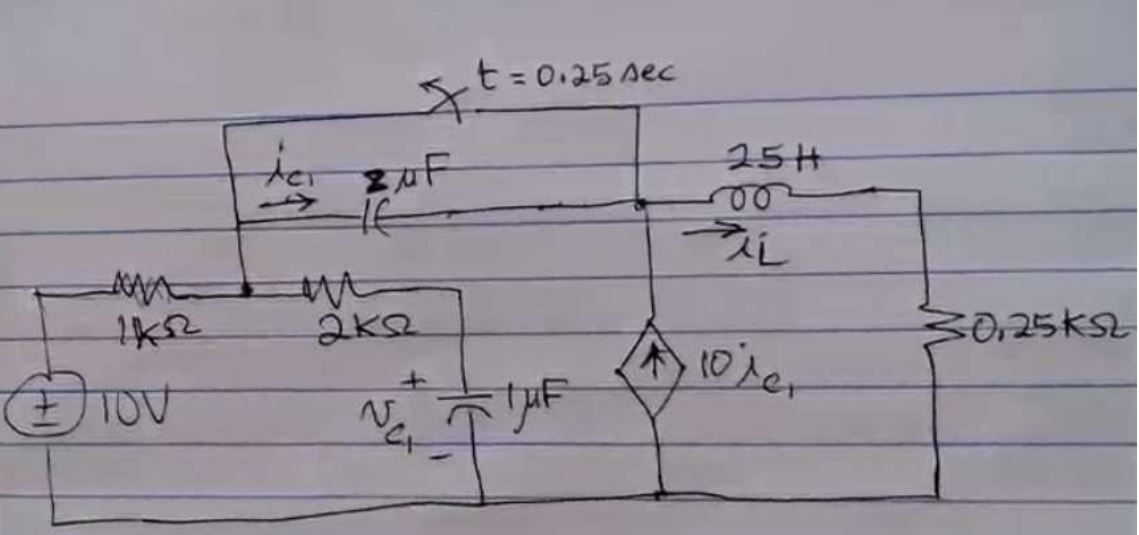 t = 0.25 sec
i_c₁
2 μF
25 H
i_L
1kΩ
2kΩ
0.25kΩ
10V
+
v_c₁
-
1μF
10 i_c₁